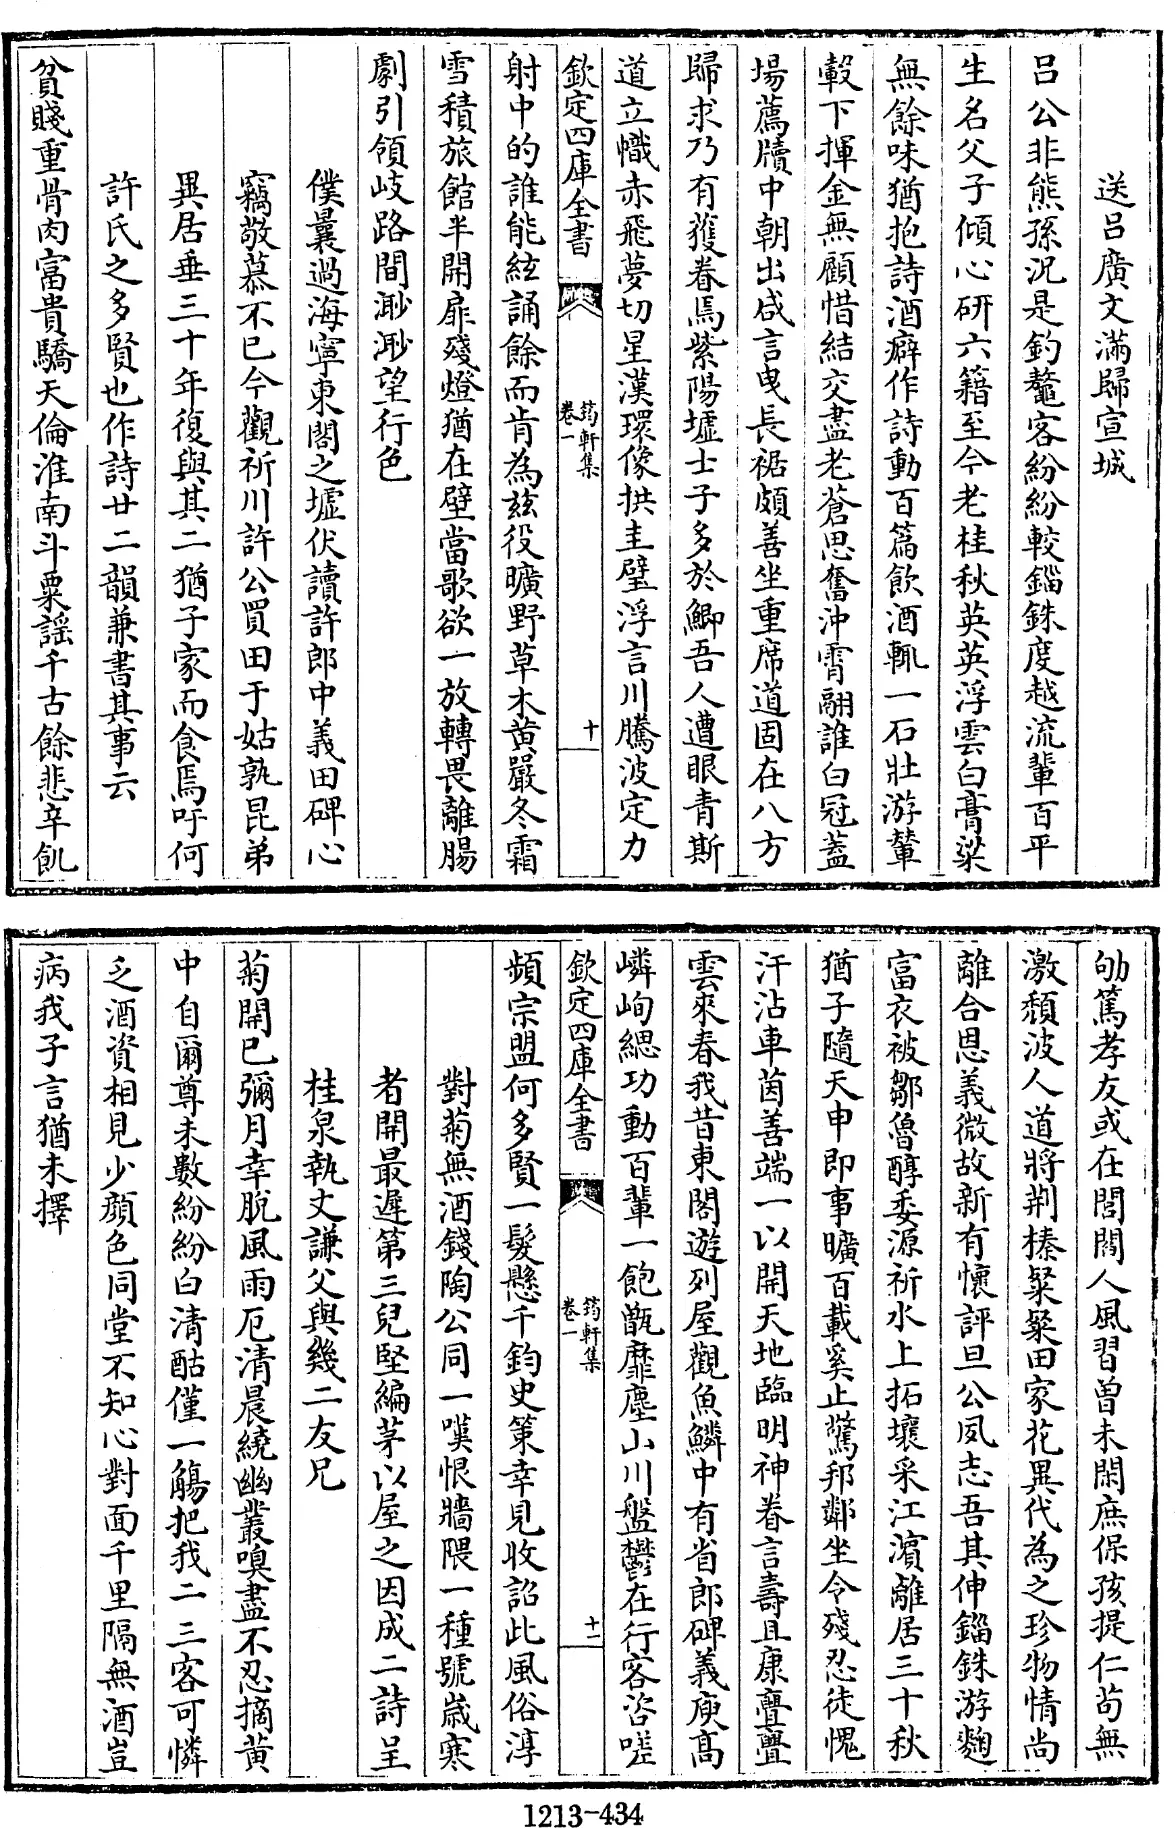 送呂廣文滿歸宣城
呂公非熊孫況是釣鼇客紛紛較錙銖度越流輩百平
生名父子傾心研六籍至今老桂秋英英浮雲白膏粱
無餘味猶抱詩酒癖作詩動百篇飲酒輒一石壯游輦
轂下揮金無顧惜結交盡老蒼思奮沖霄翮誰白冠蓋
場薦牘中朝出咸言曳長裾頗善坐重席道固在八方
歸求乃有獲眷焉紫陽墟士子多於鯽吾人遭眼青斯
道立幟赤飛夢切星漢環像拱圭璧浮言川騰波定力
欽定四庫全書
筠軒集
卷一
十
射中的誰能絃誦餘而肯為茲役曠野草木黃嚴冬霜
雪積旅館半開扉殘燈猶在壁當歌欲一放轉畏離腸
劇引領岐路間渺渺望行色
僕曩過海寧東閣之墟伏讀許郎中義田碑心
竊敬慕不已今觀祈川許公買田于姑孰昆弟
異居垂三十年復與其二猶子家而食焉吁何
許氏之多賢也作詩廿二韻兼書其事云
貧賤重骨肉富貴驕天倫淮南斗粟謠千古餘悲辛飢
劬篤孝友或在閭閻人風習曾未閑庶保孩提仁苟無
激頹波人道將荆榛粲粲田家花異代為之珍物情尚
離合恩義微故新有懷評旦公夙志吾其伸錙銖游麴
富衣被鄒魯醇委源祈水上拓壤采江濱離居三十秋
猶子隨天申即事曠百載奚止驚邦鄰坐令殘忍徒愧
汗沾車茵善端一以開天地臨明神眷言壽且康亹亹
雲來春我昔東閣遊列屋觀魚鱗中有省郎碑義庾高
嶙峋緦功動百輩一飽甑靡塵山川盤鬱在行客咨嗟
欽定四庫全書
筠軒集
卷一
十一
頻宗盟何多賢一髮懸千鈞史策幸見收詔此風俗淳
對菊無酒錢陶公同一嘆恨牆隈一種號歲寒
者開最遲第三兒堅編茅以屋之因成二詩呈
桂泉執丈謙父與幾二友兄
菊開已彌月幸脫風雨厄清晨繞幽叢嗅盡不忍摘黃
中自爾尊未數紛紛白清酤僅一觴把我二三客可憐
乏酒資相見少顏色同堂不知心對面千里隔無酒豈
病我子言猶未擇
1213-434